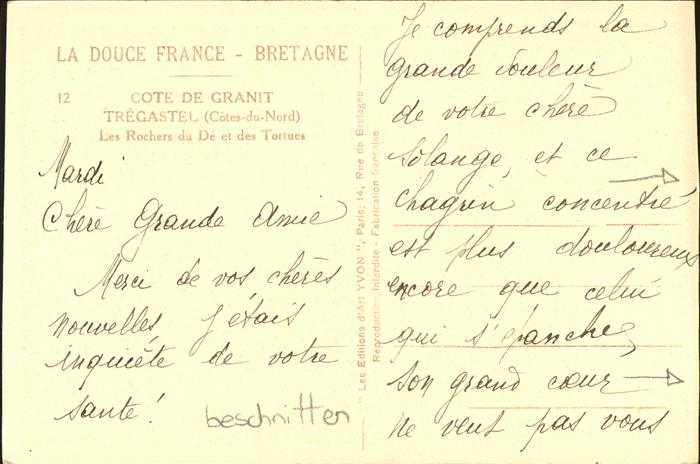 LA DOUCE FRANCE - BRETAGNE
12
COTE DE GRANIT
TRÉGASTEL (Côtes-du-Nord)
Les Rochers du Dé et des Tortues
Mardi
Chère Grande Amie
Merci de vos chères
nouvelles j'étais
inquiète de votre
santé!
beschnitten
" Les Editions d'Art YVON ", Paris, 14, Rue de Bretagne
Reproduction interdite - Fabrication française
Je comprends la
grande douleur
de votre chère
Solange, et ce
chagrin concentré
est plus douloureux
encore que celui
qui s'épanche,
son grand cœur
ne veut pas vous